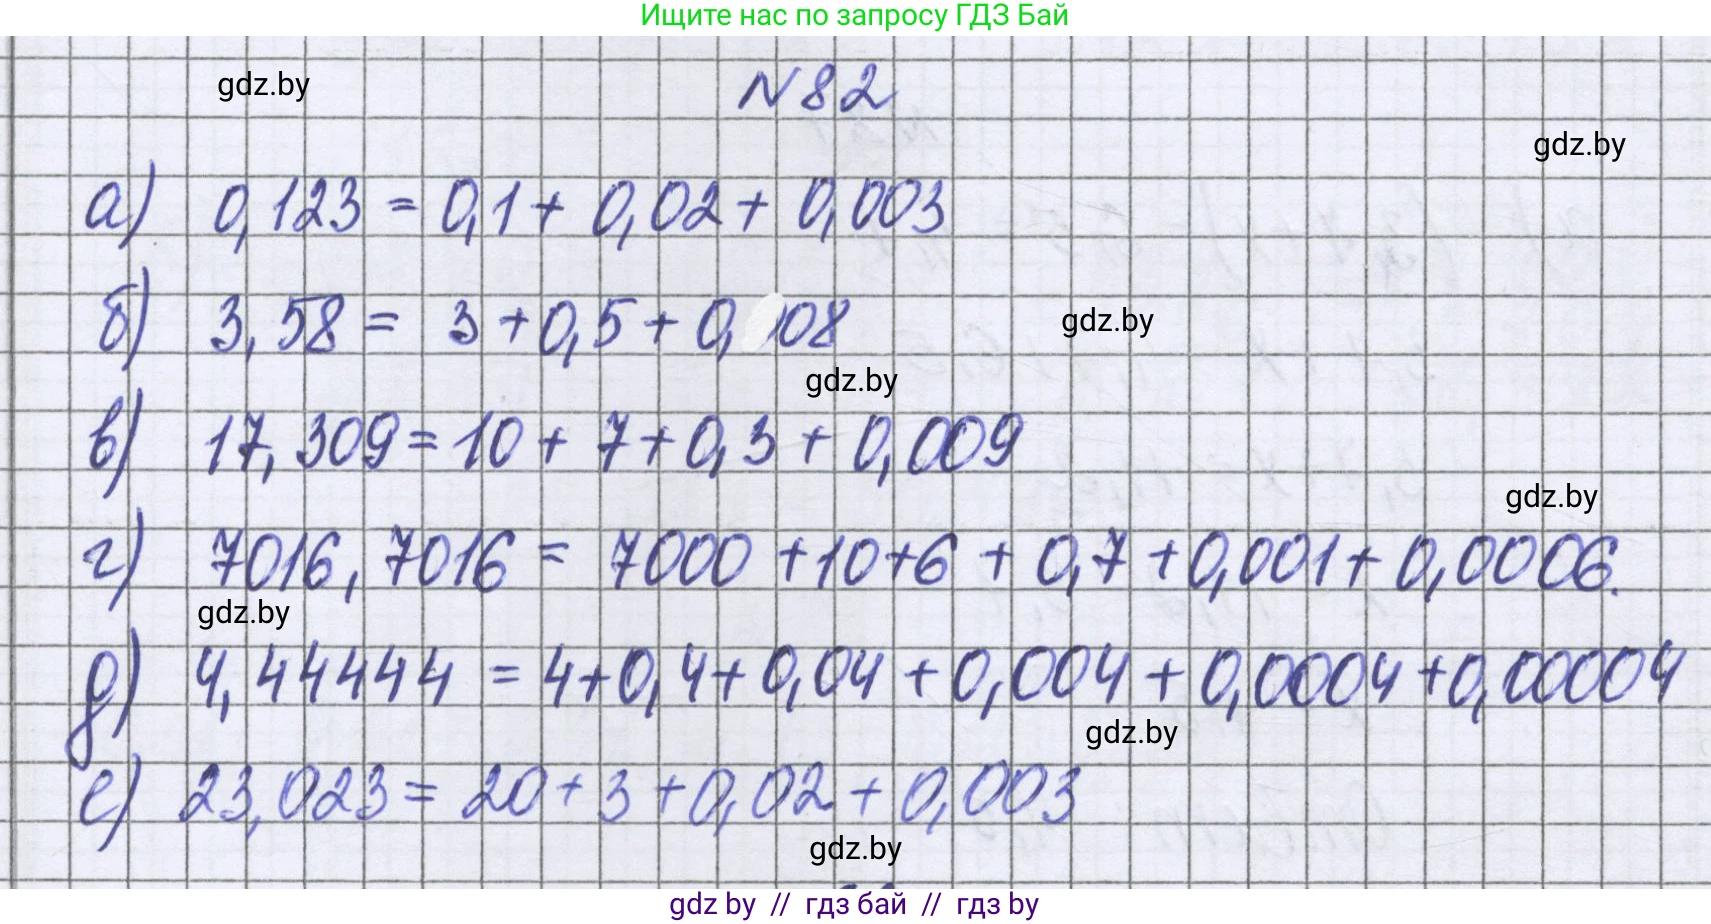 Ищите нас по запросу ГДЗ Бай
gdz.by
N82
gdz.by
а) 0,123 = 0,1 + 0,02 + 0,003
б) 3,58 = 3 + 0,5 + 0,08
gdz.by
gdz.by
в) 17,309 = 10 + 7 + 0,3 + 0,009
gdz.by
г) 7016,7016 = 7000 + 10 + 6 + 0,7 + 0,001 + 0,0006.
gdz.by
д) 4,44444 = 4 + 0,4 + 0,04 + 0,004 + 0,0004 + 0,00004
gdz.by
е) 23,023 = 20 + 3 + 0,02 + 0,003
gdz.by
gdz by // гдз бай // гдз by